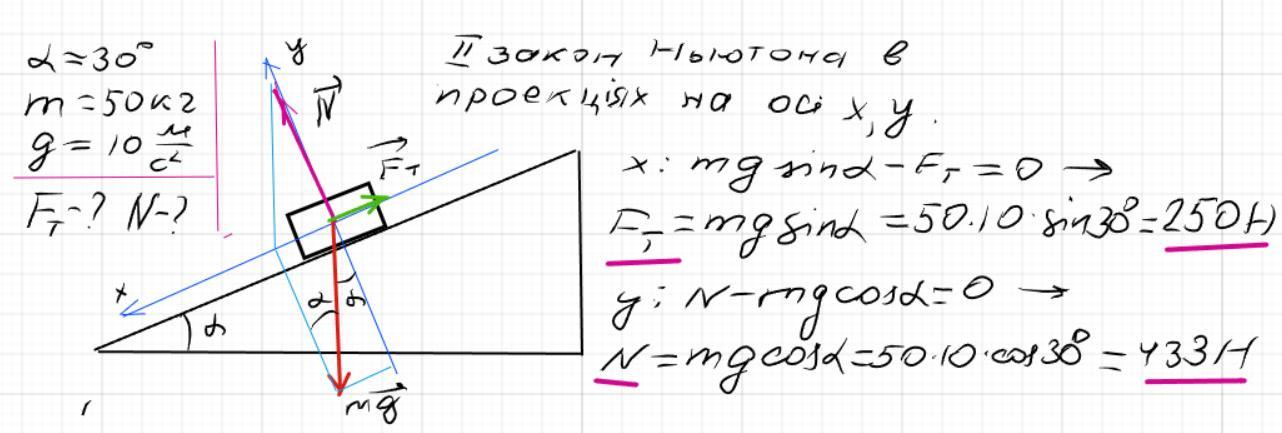 α = 30°
m = 50 кг
g = 10 м/с²
F_T - ? N - ?
y
N⃗
F⃗_T
x
α
α
α
mg⃗
II закон Ньютона в
проекціях на осі x, y.
x: mg sinα - F_T = 0 →
F_T = mg sinα = 50·10·sin30° = 250 Н
y: N - mg cosα = 0 →
N = mg cosα = 50·10·cos30° = 433 Н